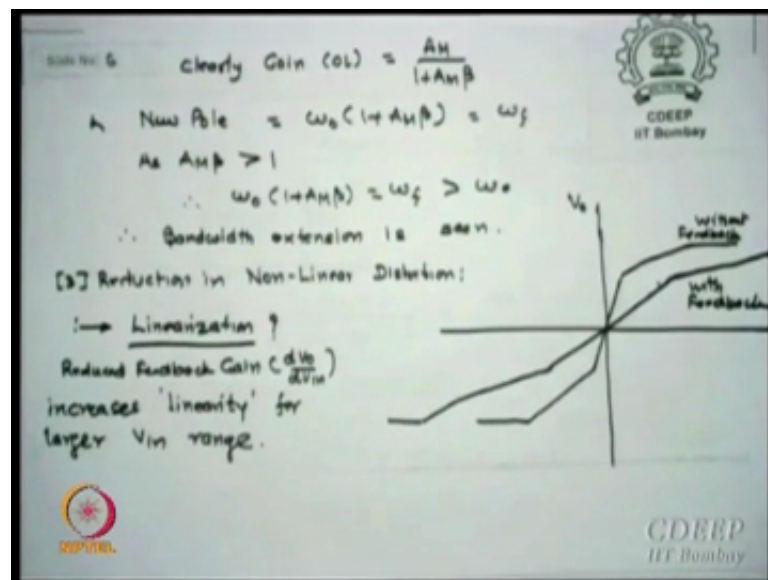 Slide No: 6
Clearly Gain (OL) = AM / 1+AMβ
New Pole = ω0 (1+ AMβ) = ωf
As AMβ > 1
∴ ω0 (1+AMβ) = ωf > ω0
∴ Bandwidth extension is seen.
[3] Reduction in Non-Linear Distortion:
:→ Linearization ?
Reduced Feedback Gain (dV0/dVin)
increases 'linearity' for
larger Vin range.
V0
without
Feedback
with
Feedback
CDEEP
IIT Bombay
NPTEL
CDEEP
IIT Bombay